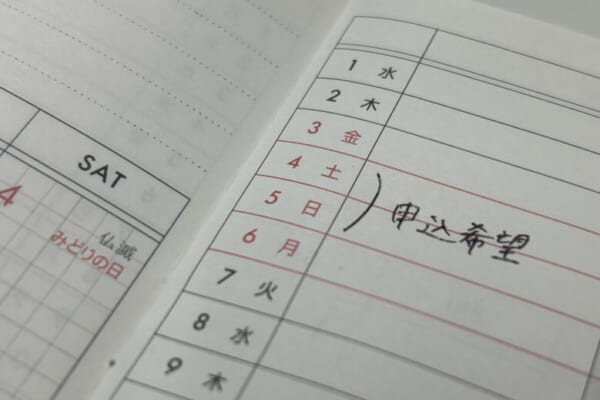 SAT
4
仏滅
みどりの日
1 水
2 木
3 金
4 土
5 日
6 月
7 火
8 水
9 木
申込希望